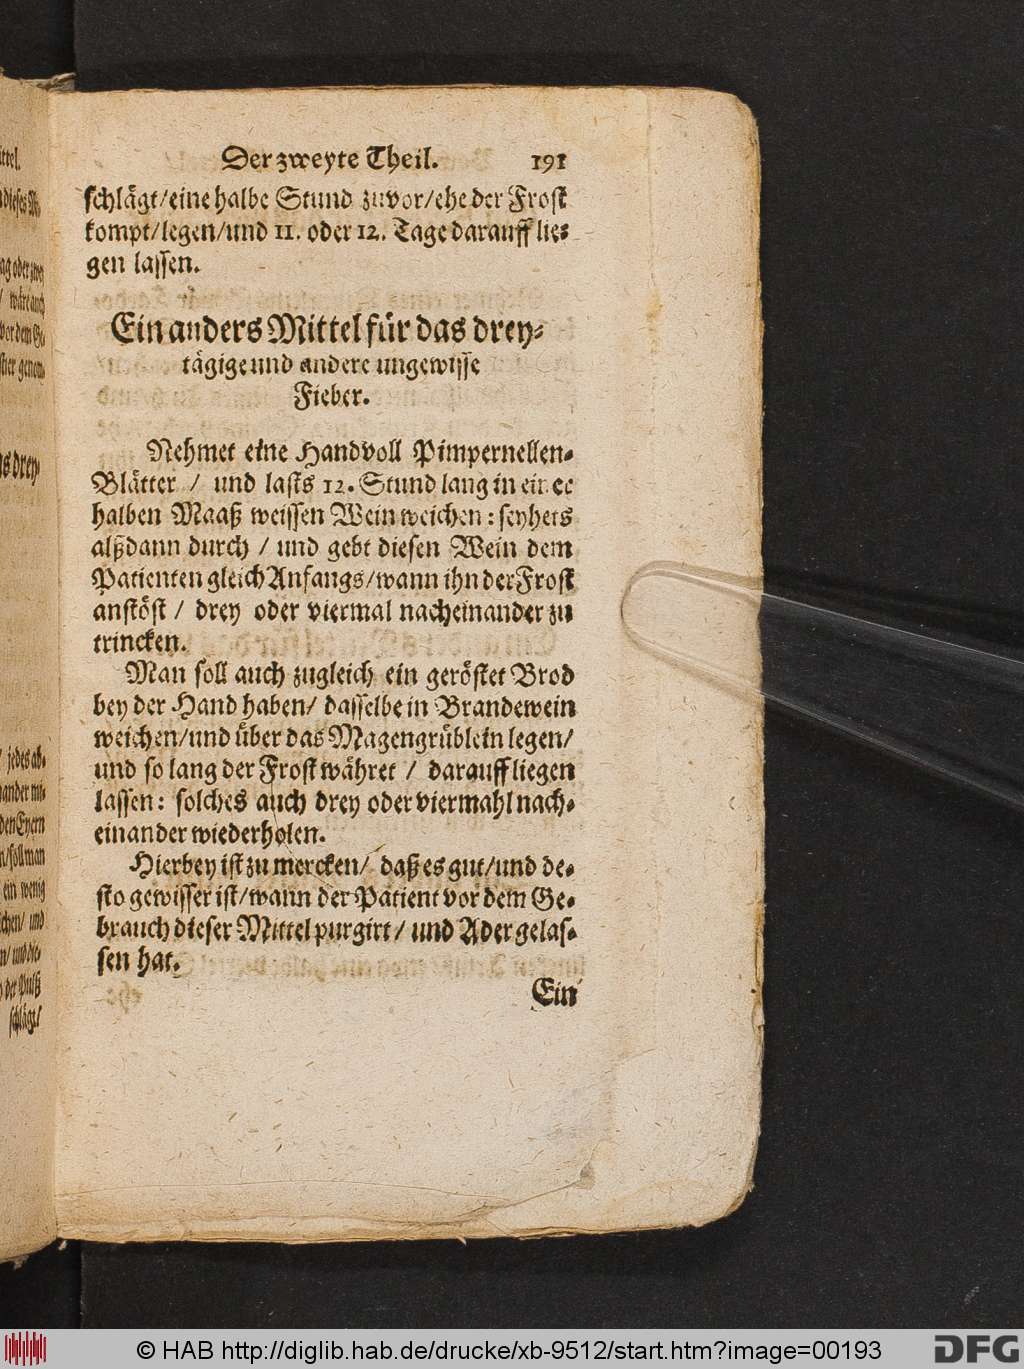 Der zweyte Theil. 191
schlägt/eine halbe Stund zuvor/ehe der Frost
kompt/legen/und 11. oder 12. Tage darauff lie-
gen lassen.
Ein anders Mittel für das drey-
tägige und andere ungewisse
Fieber.
Nehmet eine Handvoll Pimpernellen-
Blätter / und lasts 12. Stund lang in einer
halben Maaß weissen Wein weichen: seyhets
alßdann durch / und gebt diesen Wein dem
Patienten gleich Anfangs/wann ihn der Frost
anstöst / drey oder viermal nacheinander zu
trincken.
Man soll auch zugleich ein geröstet Brod
bey der Hand haben/ dasselbe in Brandewein
weichen/und über das Magengrüblein legen/
und so lang der Frost währet / darauff liegen
lassen: solches auch drey oder viermahl nach-
einander wiederholen.
Hierbey ist zu mercken/ daß es gut/und de-
sto gewisser ist/wann der Patient vor dem Ge-
brauch dieser Mittel purgirt/ und Ader gelas-
sen hat.
Ein
© HAB http://diglib.hab.de/drucke/xb-9512/start.htm?image=00193
DFG